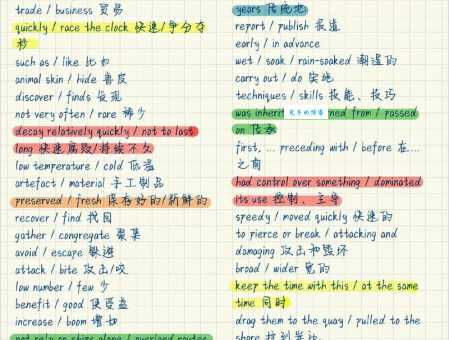 trade / business 贸易
quickly / race the clock 快速/争分夺
秒
such as / like 比如
animal skin / hide 兽皮
discover / finds 发现
not very often / rare 稀少
decay relatively quickly / not to last
long 快速腐败/持续不久
low temperature / cold 低温
artefact / material 手工制品
preserved / fresh 保存好的/新鲜的
recover / find 找回
gather / congregate 聚集
avoid / escape 躲避
attack / bite 攻击/咬
low number / few 少
benefit / good 使受益
increase / boom 增加
not rely on ships along / overland routes
years 传统地
report / publish 报道
early / in advance
wet / soak / rain-soaked 潮湿的
carry out / do 实施
techniques / skills 技能、技巧
was inherit ned from / passed
on 传承
first, ... preceding with / before 在...
之前
had control over something / dominated
its use 控制、主导
speedy / moved quickly 快速的
to pierce or break / attacking and
damaging 攻击和毁坏
broad / wider 宽的
keep the time with this / at the same
time 同时
drag them to the quay / pulled to the
shore 拉到岸边